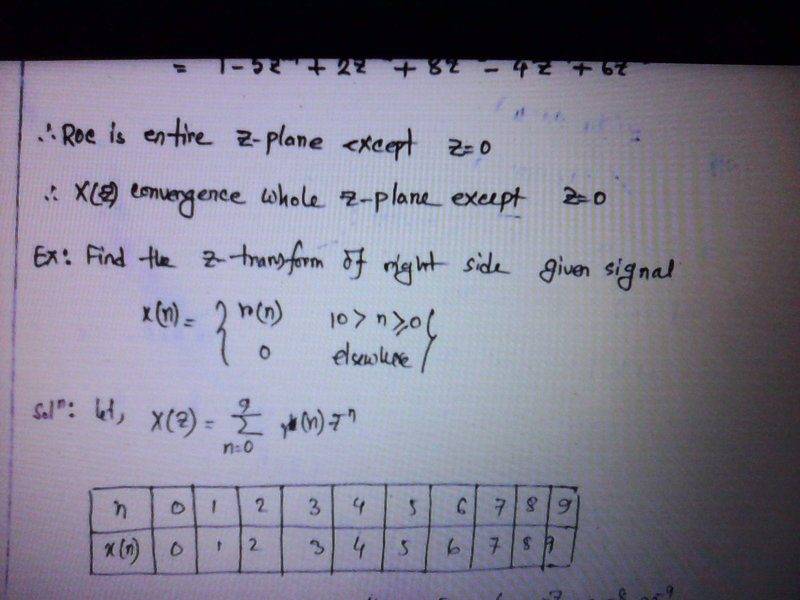 = 1 - 5z + 2z + 8z - 4z + 6z
∴ Roc is entire z-plane except z=0
∴ X(z) convergence whole z-plane except z=0
Ex: Find the z-transform of right side given signal
x(n) = { n(n) 10 > n ≥ 0
0 elsewhere }
Solⁿ: let, X(z) = 9 Σ n=0 x(n) z⁻ⁿ
n 0 1 2 3 4 5 6 7 8 9
x(n) 0 1 2 3 4 5 6 7 8 9